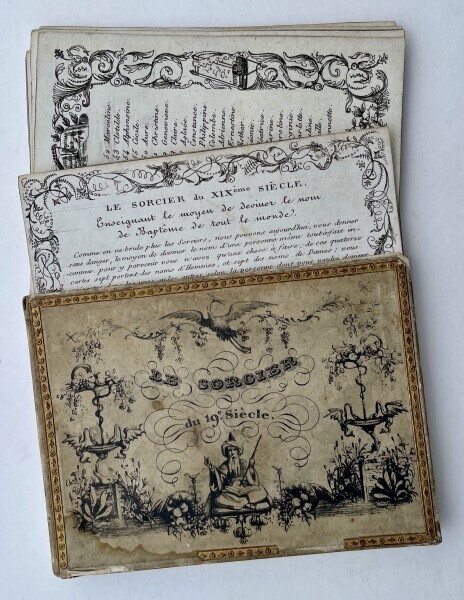 Marceline.
Clotilde.
Alphonsine.
Cécile
Aure.
Christine.
Geneviève.
Claire.
Aglaïe.
Constance.
Philippine
Colombe.
Adrienne.
Ernestine
LE SORCIER du XIXème SIÈCLE.
Enseignant le moyen de deviner le nom
de Baptême de tout le monde.
Comme on ne brule plus les Sorciers, nous pouvons aujourd'hui, vous donner
sans danger, le moyen de deviner le nom d'une personne même tout-à-fait in-
connue. pour y parvenir vous n'avez qu'une chose à faire; de ces quatorze
cartes sept portent des noms d'Hommes, et sept des noms de Dames; vous
LE SORCIER
du 19e Siècle.